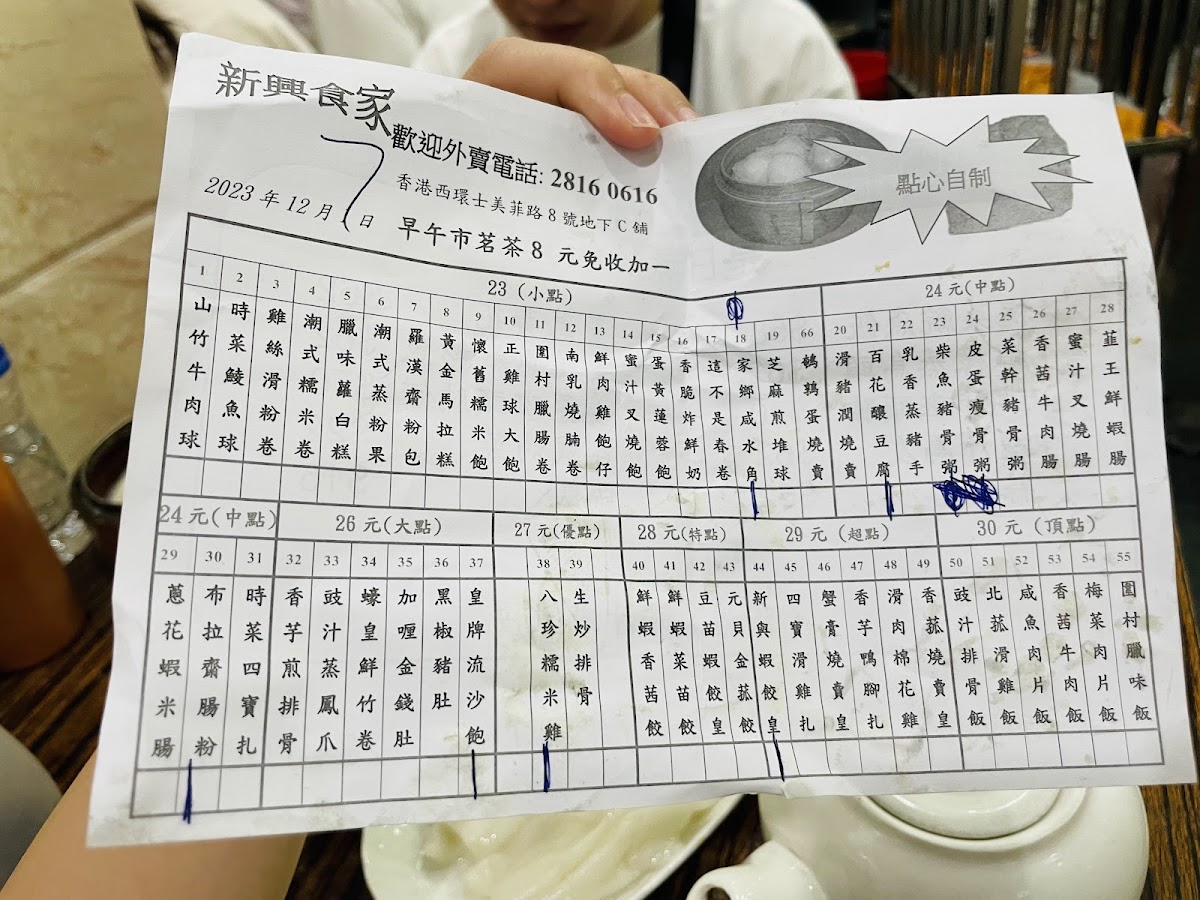 新興食家
歡迎外賣電話: 2816 0616
香港西環士美菲路 8 號地下 C 舖
2023 年 12 月 7 日
早午市茗茶 8 元免收加一
點心自制
23 (小點)
1 山竹牛肉球
2 時菜鯪魚球
3 雞絲滑粉卷
4 潮式糯米卷
5 臘味蘿白糕
6 潮式蒸粉果
7 羅漢齋粉包
8 黃金馬拉糕
9 懷舊糯米飽
10 正雞球大飽
11 圍村臘腸卷
12 南乳燒腩卷
13 鮮肉雞飽仔
14 蜜汁叉燒飽
15 蛋黃蓮蓉飽
16 香脆炸鮮奶
17 這不是春卷
18 家鄉咸水角
19 芝麻煎堆球
66 鵪鶉蛋燒賣
24 元(中點)
20 滑豬潤燒賣
21 百花釀豆腐
22 乳香蒸豬手
23 柴魚豬骨粥
24 皮蛋瘦骨粥
25 菜幹豬骨粥
26 香茜牛肉腸
27 蜜汁叉燒腸
28 韮王鮮蝦腸
24 元(中點)
29 蔥花蝦米腸
30 布拉齋腸粉
31 時菜四寶扎
26 元(大點)
32 香芋煎排骨
33 豉汁蒸鳳爪
34 蠔皇鮮竹卷
35 加喱金錢肚
36 黑椒豬肚
37 皇牌流沙飽
27 元(優點)
38 八珍糯米雞
39 生炒排骨
28 元(特點)
40 鮮蝦香茜餃
41 鮮蝦菜苗餃
42 豆苗蝦餃皇
43 元貝金菇餃
29 元 (超點)
44 新興蝦餃皇
45 四寶滑雞扎
46 蟹膏燒賣皇
47 香芋鴨腳扎
48 滑肉棉花雞
49 香菇燒賣皇
30 元 (頂點)
50 豉汁排骨飯
51 北菇滑雞飯
52 咸魚肉片飯
53 香茜牛肉飯
54 梅菜肉片飯
55 圍村臘味飯